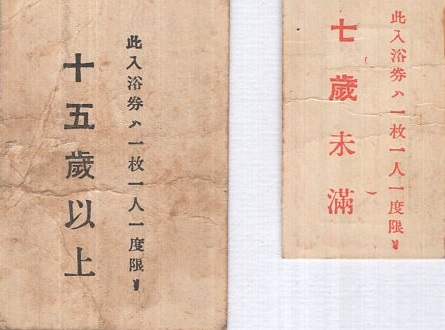 此入浴劵ハ一枚一人一度限リ
十五歲以上
此入浴劵ハ一枚一人一度限リ
七歲未滿